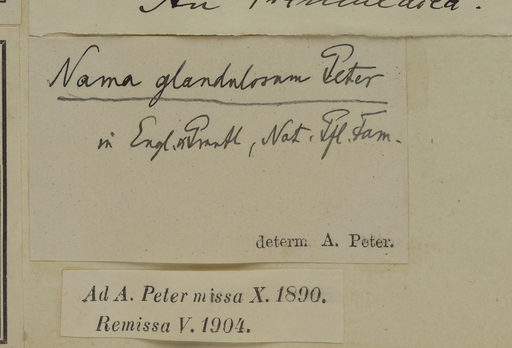 Nama glandulosum Peter
in Engl. & Prantl, Nat. Pfl. Fam.
determ. A. Peter.
Ad A. Peter missa X. 1890.
Remissa V. 1904.